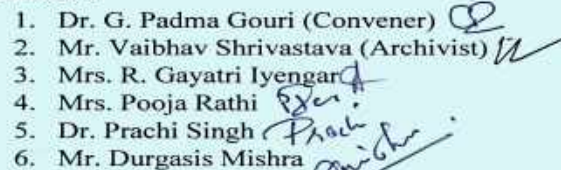 1. Dr. G. Padma Gouri (Convener)
2. Mr. Vaibhav Shrivastava (Archivist)
3. Mrs. R. Gayatri Iyengar
4. Mrs. Pooja Rathi
5. Dr. Prachi Singh Prach
6. Mr. Durgasis Mishra